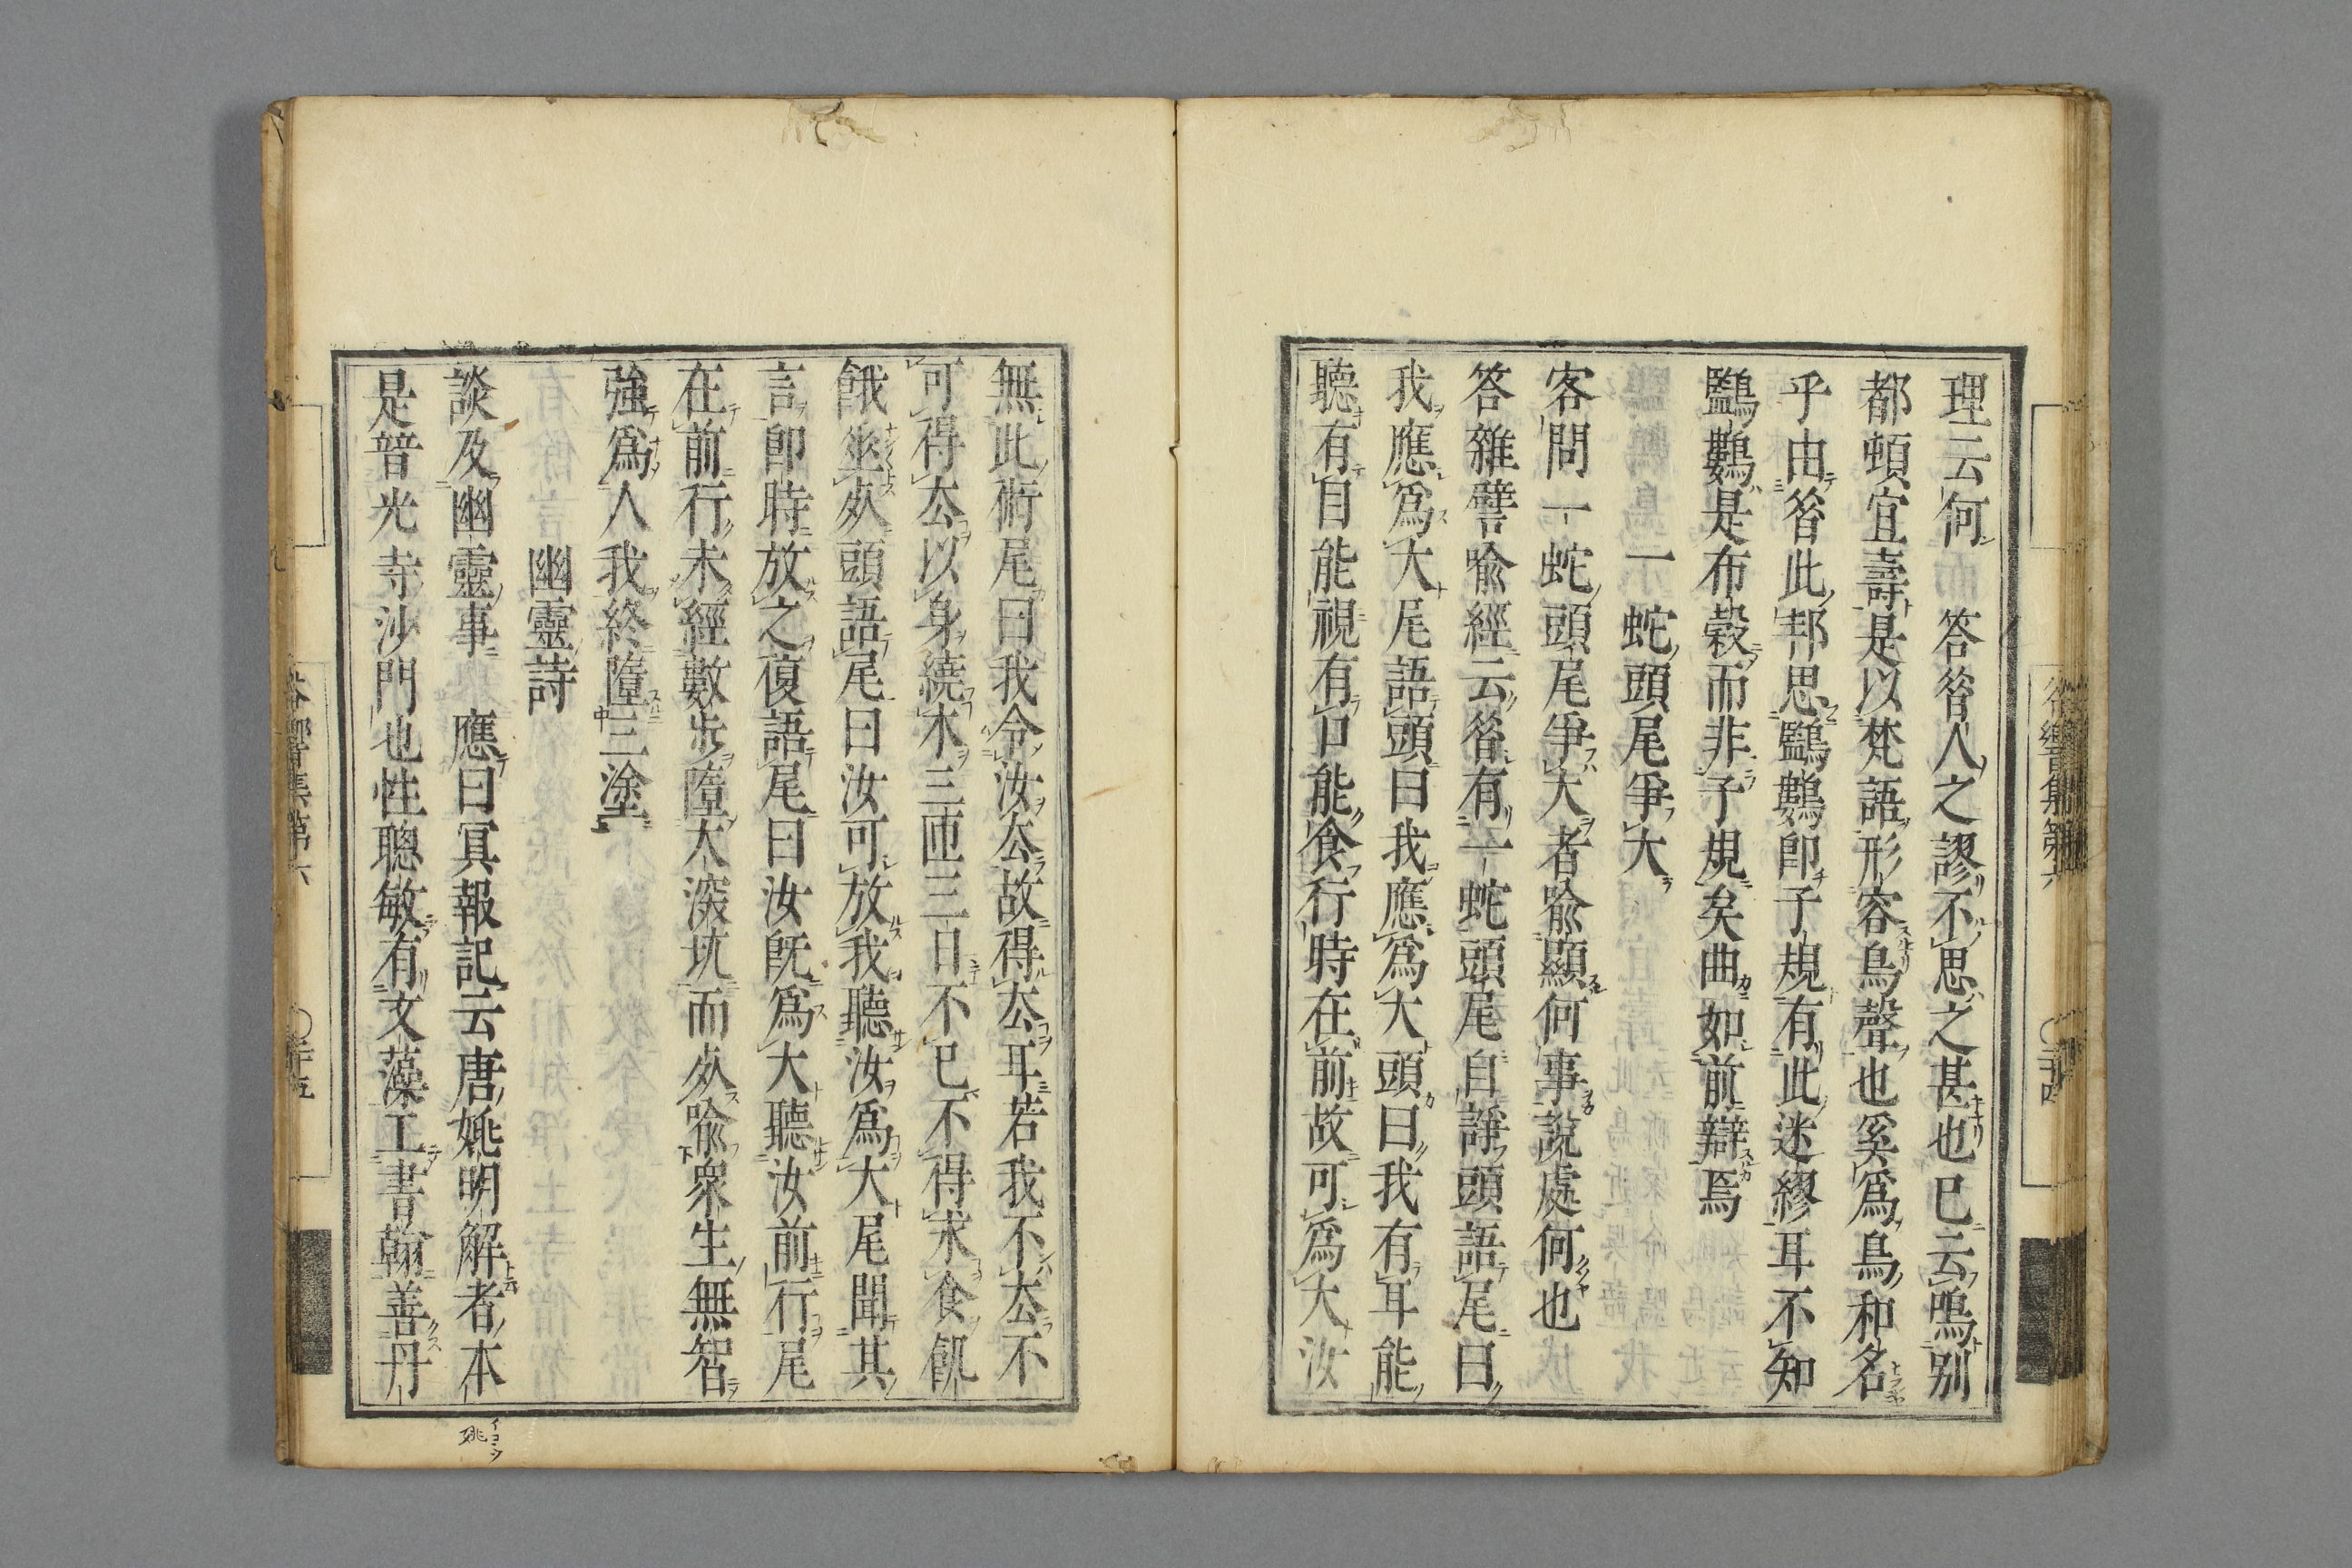 理云何　答昝人之謬不思之甚也已云鳴別
都頓宜壽是以梵語形容鳥聲也奚爲鳥和名
乎由昝此邦思鷖鷜卽子規有此迷繆耳不知
鷖鷜是布穀而非子規矣曲如前辯焉
一蛇頭尾爭大
客問一蛇頭尾爭大者喩顯何事說處何也
答雜譬喩經云昝有一蛇頭尾自諍頭語尾曰
我應爲大尾語頭曰我應爲大頭曰我有耳能
聽有目能視有口能食行時在前故可爲大汝
無此術尾曰我令汝去故得去耳若我不去不
可得去以身繞木三匝三日不已不得求食飢
餓垂死頭語尾曰汝可放我聽汝爲大尾聞其
言卽時放之復語尾曰汝旣爲大聽汝前行尾
在前行未經數步墮大深坑而死喩衆生無智
強爲人我終墮三塗
幽靈詩
談及幽靈事　應曰冥報記云唐姚明解者本
是普光寺沙門也性聰敏有文藻工書翰善丹
姚
谷響集第六
谷響集第六